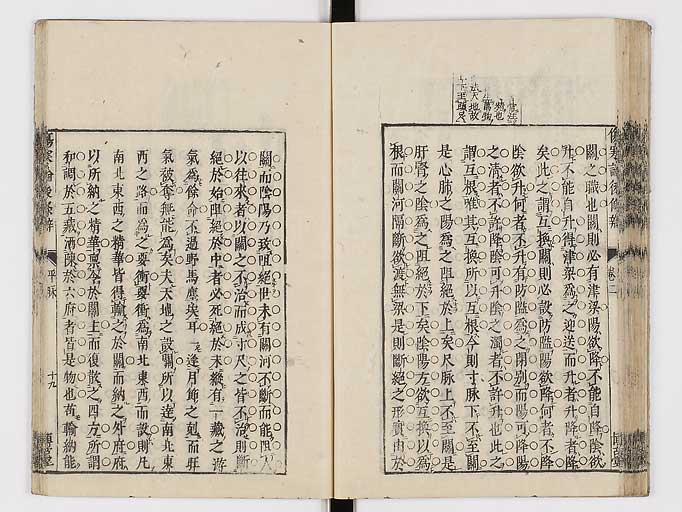 關之職也關則必有津梁陽欲降不能自降陰欲
升不能自升得津梁為之迎送而升者升降者降
矣此之謂互換關則必設防隘陽欲降何者不降
陰欲升何者不升有防隘為之閉別而陽可降陽
之清者不許降陰可升陰之濁者不許升也此之
謂互根唯其互換所以互根今則寸脉下不至關
是心肺之陽為之阻絕於上矣尺脉上不至關是
肝腎之陰為之阻絕於下矣陰陽方欲互換以為
根而關河隔斷欲渡無梁是則斷絕之形實由於
關而陰陽乃致阻絕世未有關河不斷而能
以往來者以關之不治而成寸尺之皆不治則斷
絕於始阻絕於中者必死絕於末縱有一藏之
氣為餘命不過野馬塵矣耳一逢月飾之剋而旺
氣被奪無能為矣夫天地之設關所以達南北東
西之路而為之要衝要衝為南北東西而設則凡
南北東西之精華皆得輸之於關而納之外府府
以所納之精華稟令於關主而復散之四方所謂
和調於五藏洒陳於六府者皆是物也故輸納能
傷寒論後條辨
卷二
平脉
十九